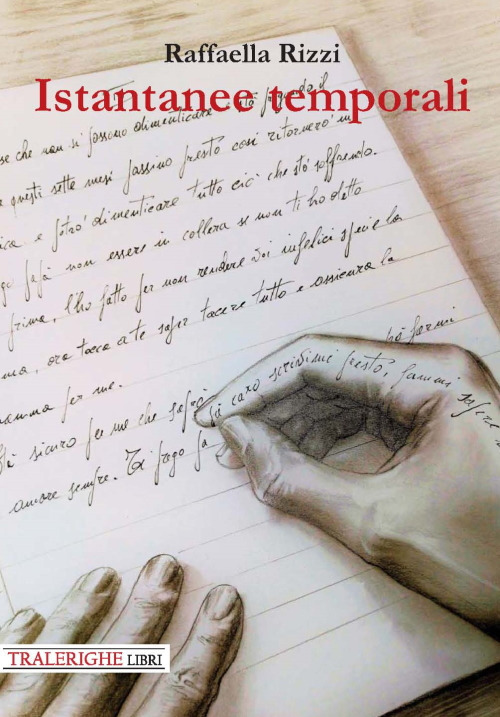 Raffaella Rizzi
Istantanee temporali
se che non si possono dimenticare
questi sette mesi passino presto così ritornerò in
e potrò dimenticare tutto ciò che stò soffrendo.
papà non essere in collera se non ti ho detto
prima, l'ho fatto per non rendere voi infelici
ma, ora tocca a te saper tacere tutto e assicura la
mamma per me.
sicuro per me che saprò
caro scrivimi presto, fammi sapere
amare sempre. Ti prego
TRALERIGHE LIBRI